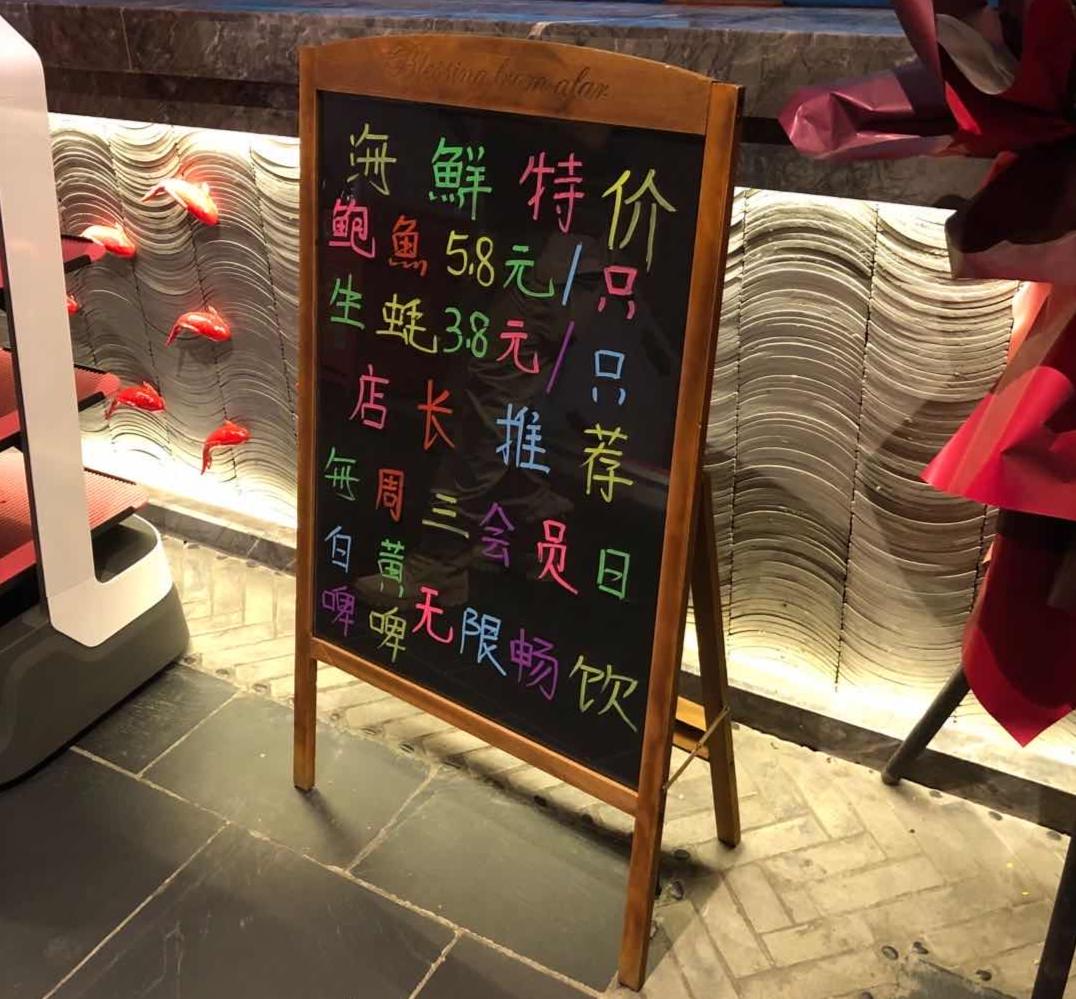 Blessing from afar
海鲜特价
鲍魚5.8元/只
生蚝3.8元/只
店长推荐
每周三会员日
白黄
啤啤无限畅饮